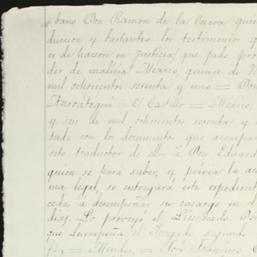 bano Don Ramon de la Cueva, quien
duccion y bastantes los testimonios q
u de hacerse en justicia que pido, pro
der de malicia Mexico, quince de
mil ochocientos sesenta y uno = Don
Anzorategui = El Castillo = Mexico,
y seis de mil ochocientos sesenta y
tado con los documentos que acompañ
sete traductor de ellos á Don Eduard
quien se haga saber, y previa la ace
ma legal, se entregará este espedient
ceda á desempeñar su encargo en el
dias. Lo proveyó el Licenciado Don
que desempeña el Juzgado segundo
fé = Mendez = José Francisco